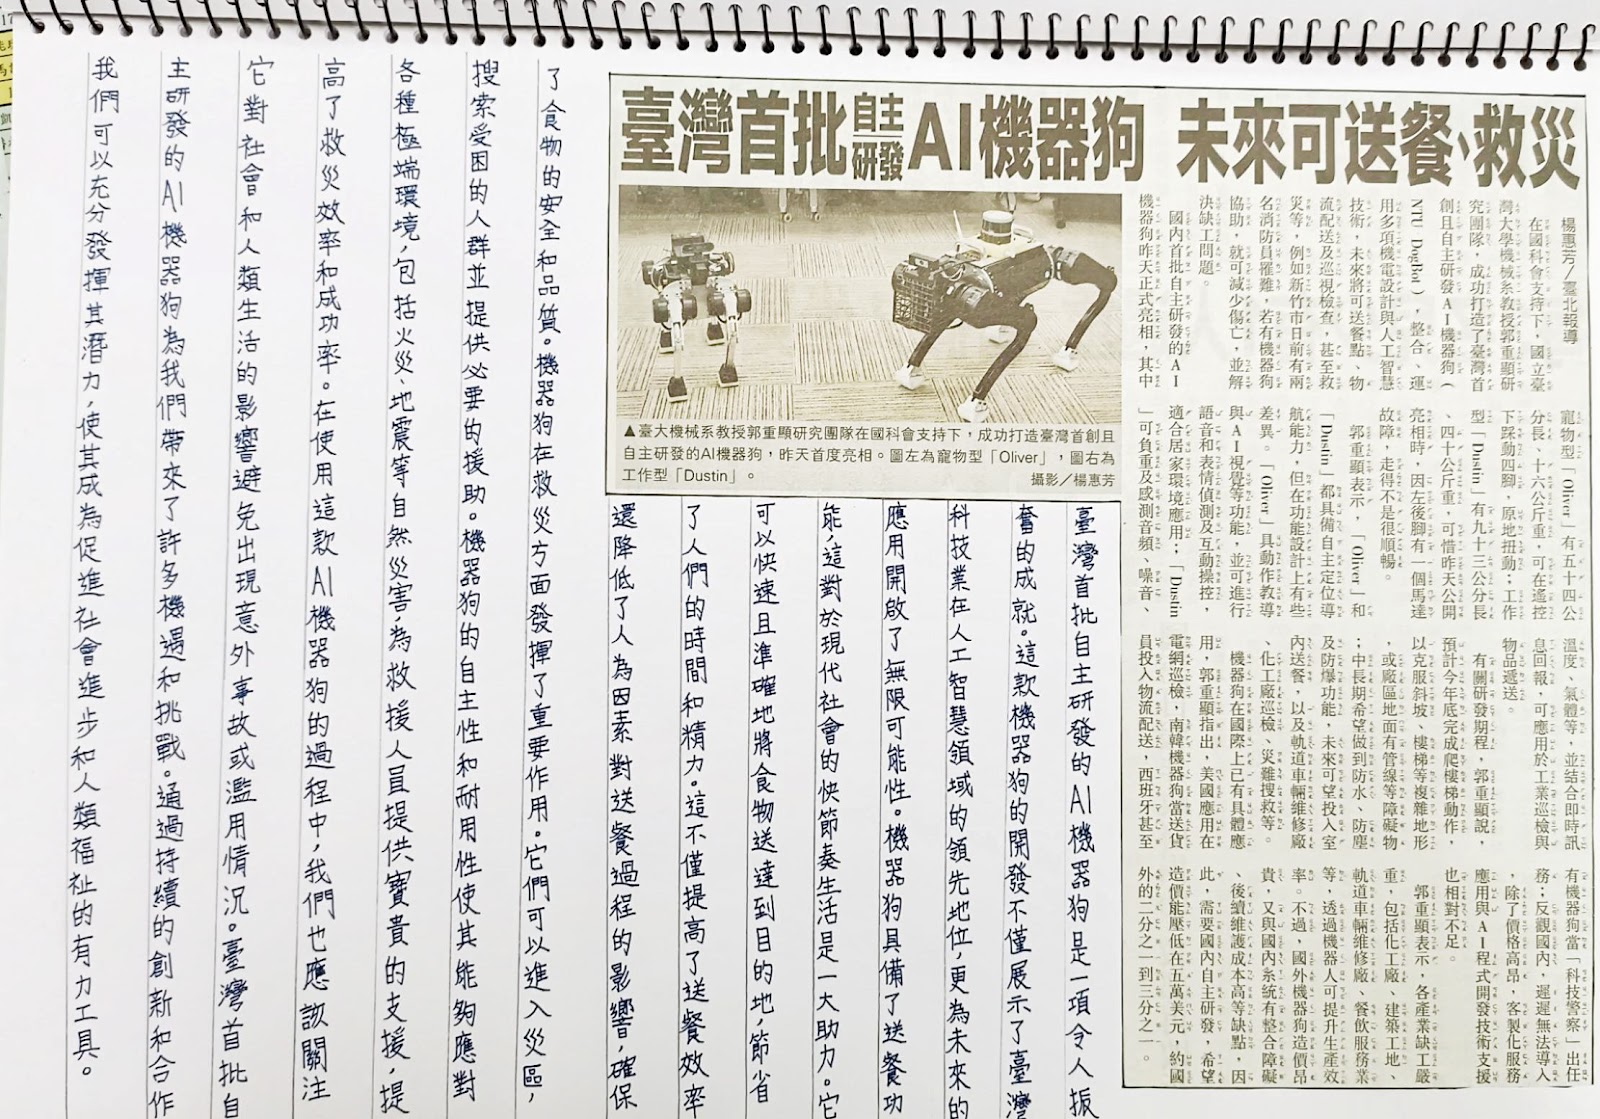 臺灣首批自主研發AI機器狗 未來可送餐、救災
楊惠芳／臺北報導
在國科會支持下，國立臺
灣大學機械系教授郭重顯研
究團隊，成功打造了臺灣首
創且自主研發AI機器狗（
NTU DogBot），整合、運
用多項機電設計與人工智慧
技術，未來將可送餐點、物
流配送及巡視檢查，甚至救
災等，例如新竹市日前有兩
名消防員罹難，若有機器狗
協助，就可減少傷亡，並解
決缺工問題。
國內首批自主研發的AI
機器狗昨天正式亮相，其中
寵物型「Oliver」有五十四公
分長、十六公斤重，可在遙控
下踩動四腳，原地扭動；工作
型「Dustin」有九十三公分長
、四十公斤重，可惜昨天公開
亮相時，因左後腳有一個馬達
故障，走得不是很順暢。
郭重顯表示，「Oliver」和
「Dustin」都具備自主定位導
航能力，但在功能設計上有些
差異。「Oliver」具動作教導
與AI視覺等功能，並可進行
語音和表情偵測及互動操控，
適合居家環境應用；「Dustin
」可負重及感測音頻、噪音、
溫度、氣體等，並結合即時訊
息回報，可應用於工業巡檢與
物品遞送。
有關研發期程，郭重顯說，
預計今年底完成爬樓梯動作，
以克服斜坡、樓梯等複雜地形
，或廠區地面有管線等障礙物
；中長期希望做到防水、防塵
及防爆功能，未來可望投入室
內送餐，以及軌道車輛維修廠
、化工廠巡檢、災難搜救等。
機器狗在國際上已有具體應
用，郭重顯指出，美國應用在
電網巡檢，南韓機器狗當送貨
員投入物流配送，西班牙甚至
有機器狗當「科技警察」出任
務；反觀國內，遲遲無法導入
，除了價格高昂，客製化服務
應用與AI程式開發技術支援
也相對不足。
郭重顯表示，各產業缺工嚴
重，包括化工廠、建築工地、
軌道車輛維修廠、餐飲服務業
等，透過機器人可提升生產效
率。不過，國外機器狗造價昂
貴，又與國內系統有整合障礙
、後續維護成本高等缺點，因
此，需要國內自主研發，希望
造價能壓低在五萬美元，約國
外的二分之一到三分之一。
▲臺大機械系教授郭重顯研究團隊在國科會支持下，成功打造臺灣首創且
自主研發的AI機器狗，昨天首度亮相。圖左為寵物型「Oliver」，圖右為
工作型「Dustin」。 攝影／楊惠芳
臺灣首批自主研發的AI機器狗是一項令人振
奮的成就。這款機器狗的開發不僅展示了臺灣
科技業在人工智慧領域的領先地位，更為未來的
應用開啟了無限可能性。機器狗具備了送餐功
能，這對於現代社會的快節奏生活是一大助力。它
可以快速且準確地將食物送達到目的地，節省
了人們的時間和精力。這不僅提高了送餐效率
還降低了人為因素對送餐過程的影響，確保
了食物的安全和品質。機器狗在救災方面發揮了重要作用。它們可以進入災區，
搜索受困的人群並提供必要的援助。機器狗的自主性和耐用性使其能夠應對
各種極端環境，包括火災、地震等自然災害，為救援人員提供寶貴的支援，提
高了救災效率和成功率。在使用這款AI機器狗的過程中，我們也應該關注
它對社會和人類生活的影響避免出現意外事故或濫用情況。臺灣首批自
主研發的AI機器狗為我們帶來了許多機遇和挑戰。通過持續的創新和合作
我們可以充分發揮其潛力，使其成為促進社會進步和人類福祉的有力工具。